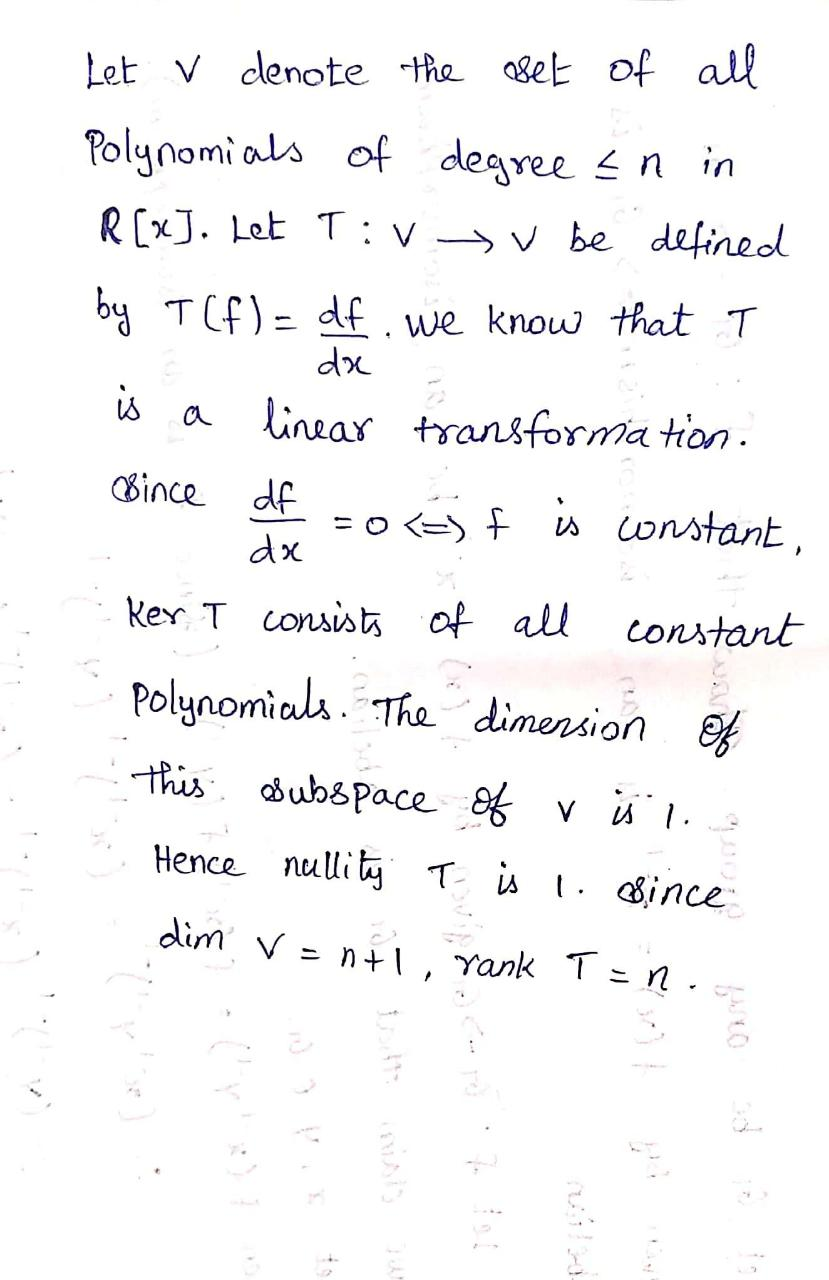 Let V denote the set of all
Polynomials of degree ≤ n in
R[x]. Let T : V → V be defined
by T(f) = df/dx. we know that T
is a linear transformation.
Since df/dx = 0 <=> f is constant,
Ker T consists of all constant
Polynomials. The dimension of
this subspace of V is 1.
Hence nullity T is 1. Since
dim V = n+1, rank T = n.